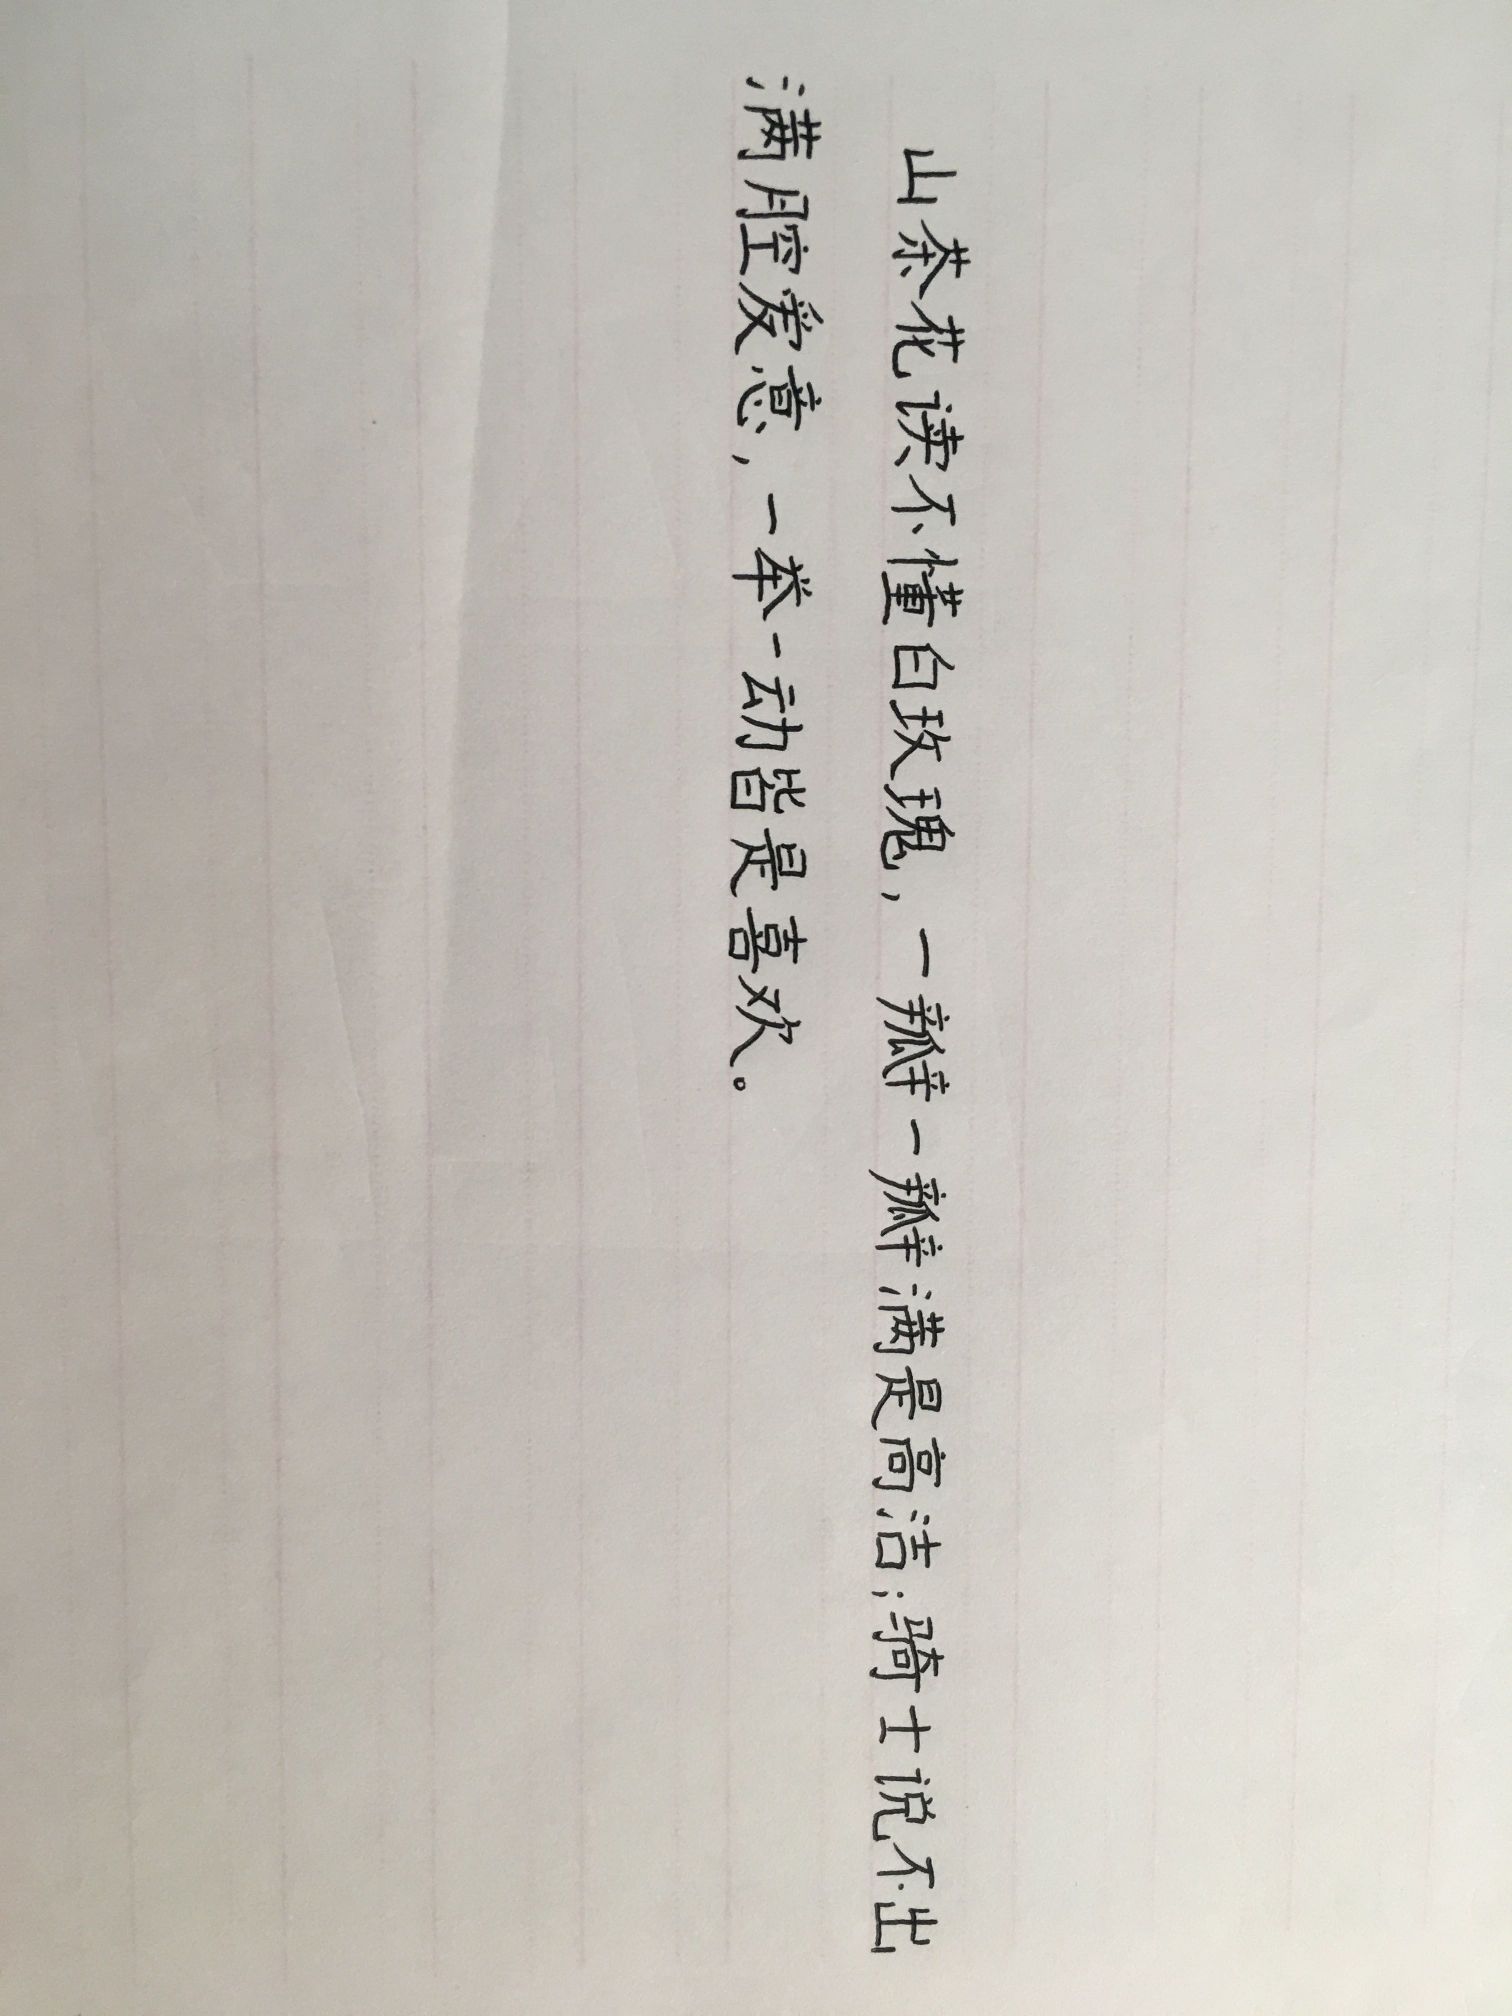 山茶花读不懂白玫瑰,一瓣一瓣满是高洁;骑士说不出
满腔爱意,一举一动皆是喜欢。